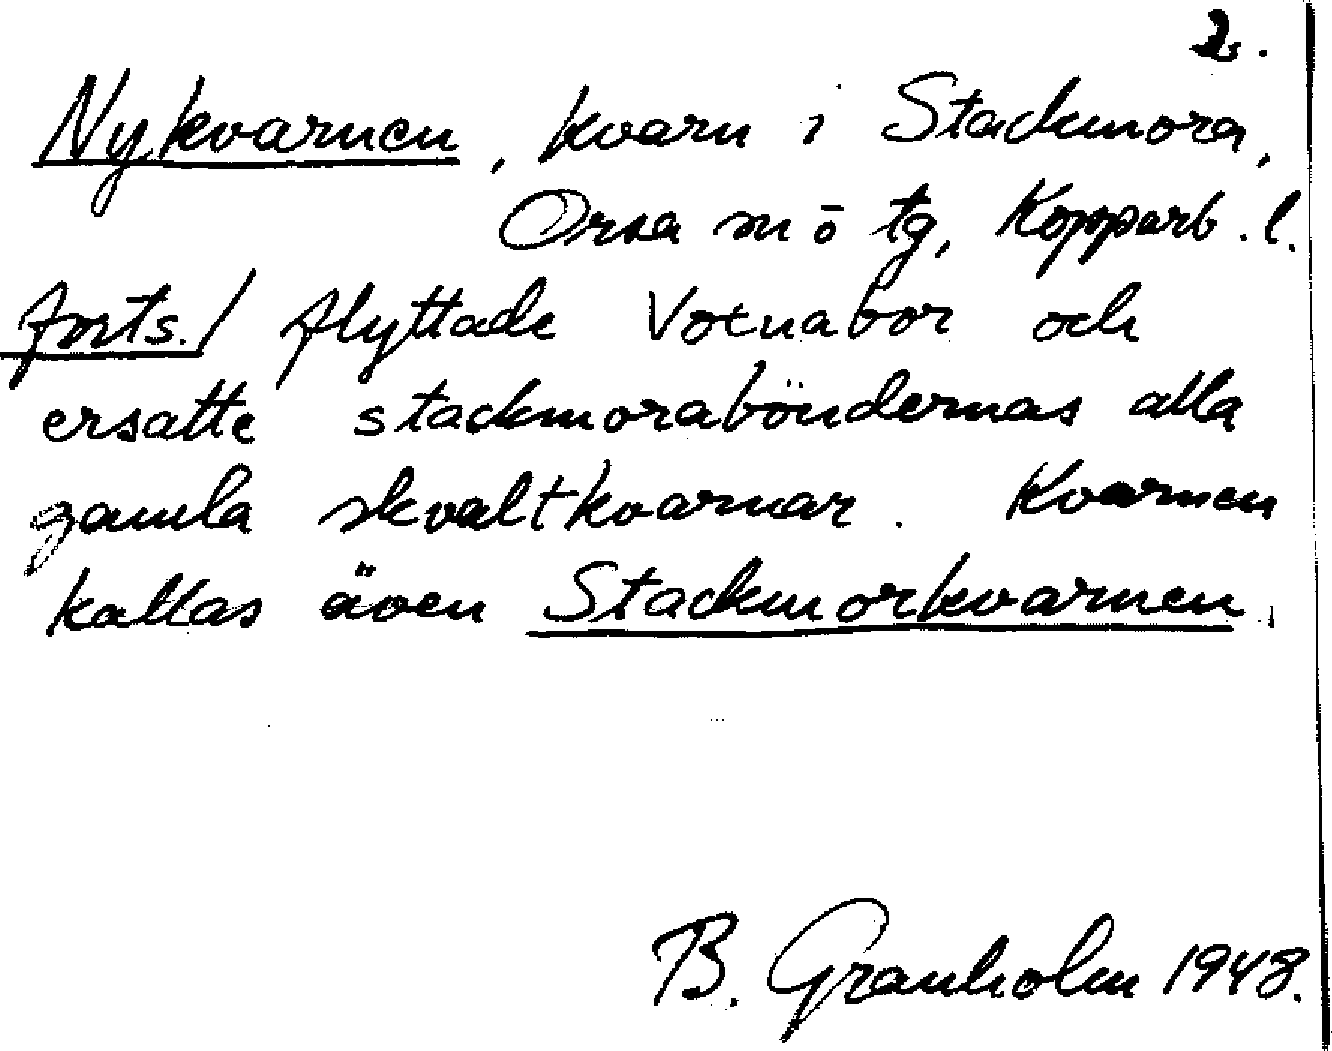 2.
Nykvarnen, kvarn i Stackmora,
Orsa sn o tg, Kopparb. l.
forts./ flyttade Voxnabor och
ersatte stackmoraböndernas alla
gamla skvaltkvarnar. Kvarnen
kallas även Stackmorkvarnen.
B. Granholm 1948.